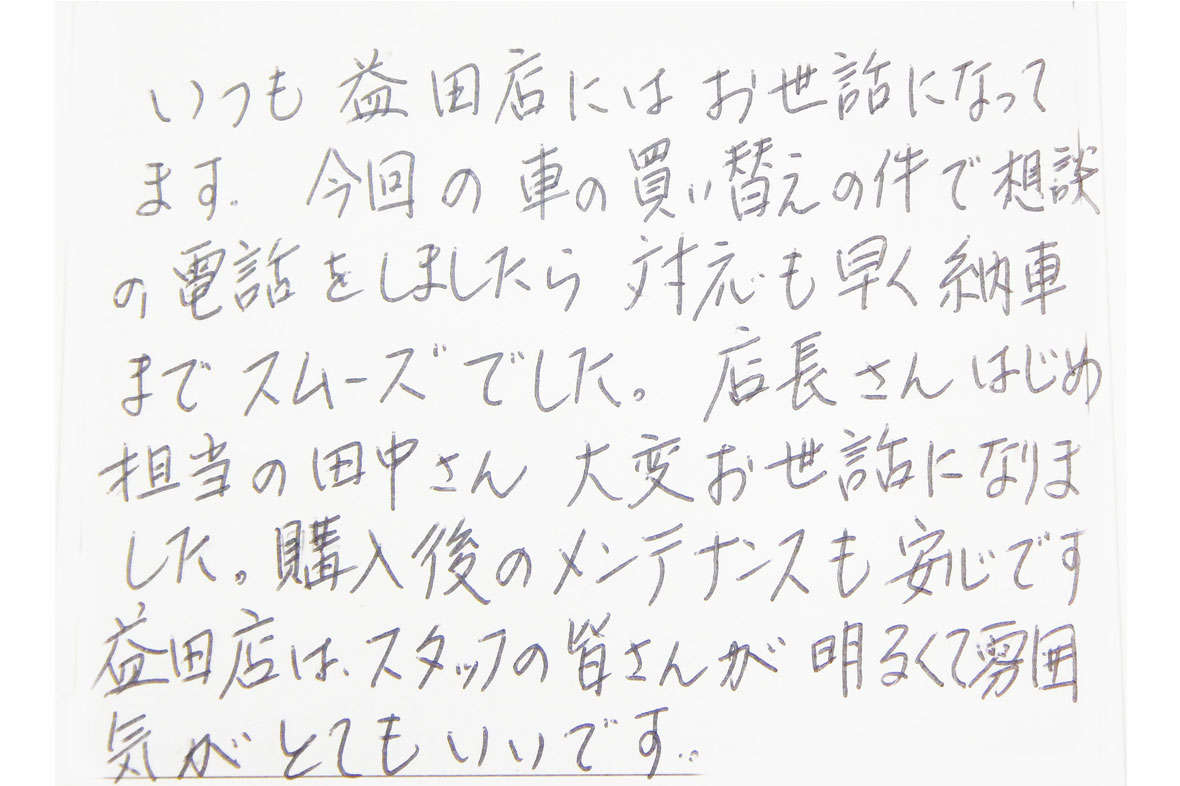 いつも益田店にはお世話になって
ます。今回の車の買い替えの件で相談
の電話をしましたら対応も早く納車
までスムーズでした。店長さんはじめ
担当の田中さん大変お世話になりま
した。購入後のメンテナンスも安心です
益田店は、スタッフの皆さんが明るくて雰囲
気がとてもいいです。